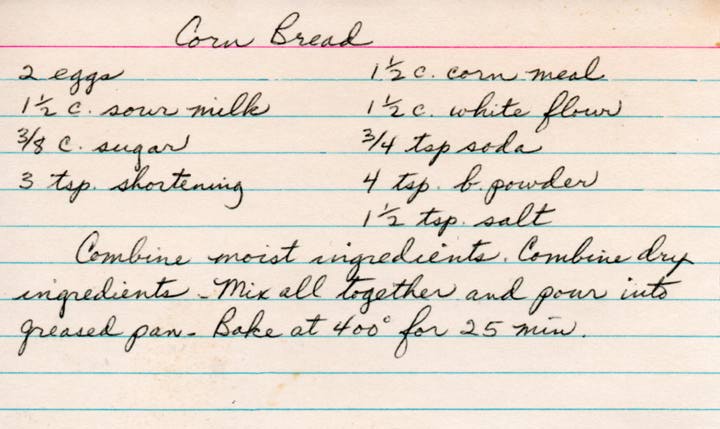 Corn Bread
2 eggs
1½ c. sour milk
3/8 c. sugar
3 tsp. shortening
1½ c. corn meal
1½ c. white flour
3/4 tsp soda
4 tsp. b. powder
1½ tsp. salt
Combine moist ingredients. Combine dry
ingredients - Mix all together and pour into
greased pan - Bake at 400° for 25 min.